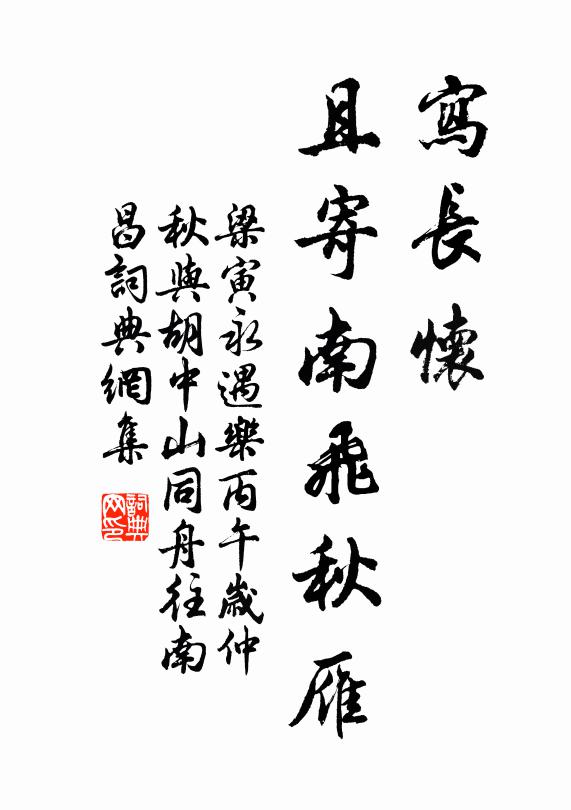 寫長懷
且寄南飛秋雁
梁寅永遇樂丙午歲仲
秋與胡中山同舟往南
昌詞典網集
詞典
网印